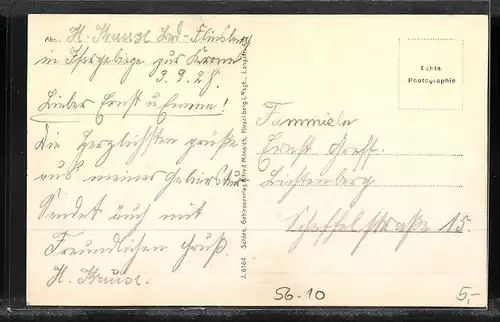 Abs. H. Krause Bad-Flinsberg
im Isergebirge zur Krone
3.9.28.
Lieber Ernst u Emma!
Die Herzlichsten Grüße
aus meiner Geburts
Sendet auch mit
Freundlichen Gruß.
H. Krause.
J. 6164 Schles. Gebirgsverlag Alfred Minnich, Hirschberg i. Rsgb.,
Echte
Photographie
Fammielie
Ernst Greff.
Lichtenberg
Scheffelstraße 15.
56.10
5,-